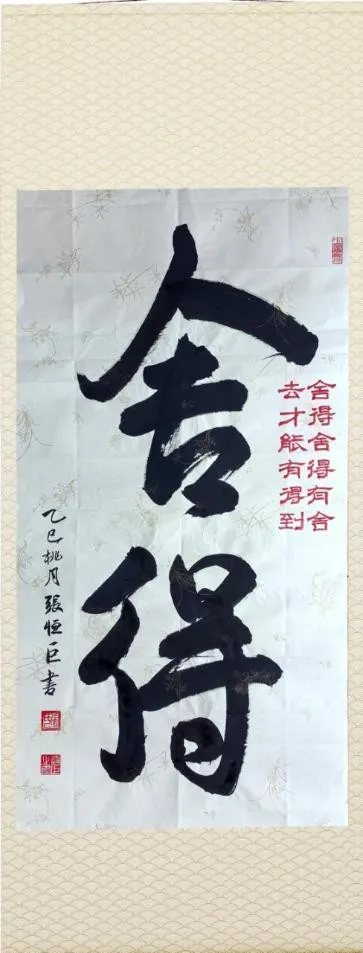 舍得
舍得舍得有舍
去才能有得到
乙巳桃月張恒巨書